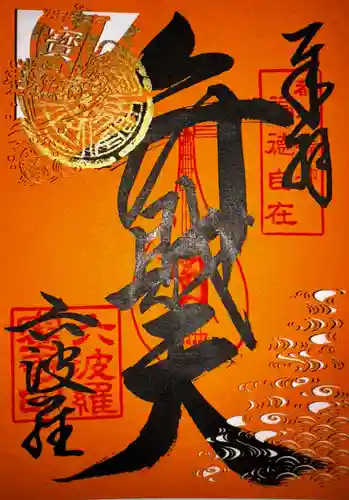 奉拝
徳自在
弁財天
六波羅
六波羅